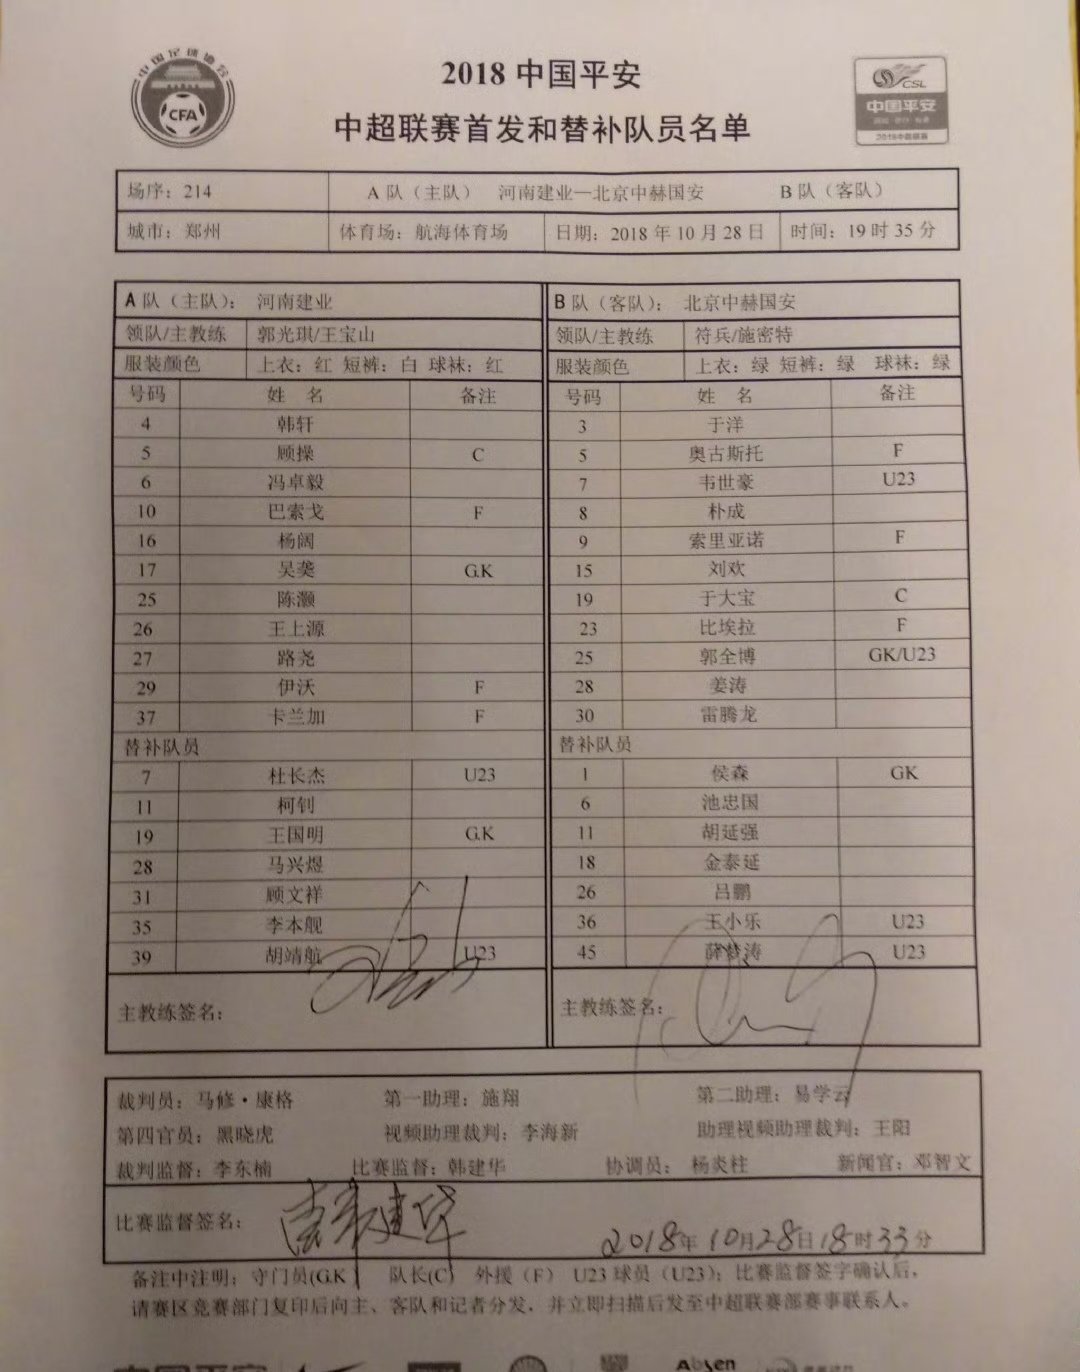 中国足球协会
CFA
2018 中国平安
中超联赛首发和替补队员名单
CSL
中国平安
2018中超联赛
场序：214 A 队（主队） 河南建业—北京中赫国安 B 队（客队）
城市：郑州 体育场：航海体育场 日期：2018 年 10 月 28 日 时间：19 时 35 分
A 队（主队）： 河南建业 B 队（客队）： 北京中赫国安
领队/主教练 郭光琪/王宝山 领队/主教练 符兵/施密特
服装颜色 上衣：红 短裤：白 球袜：红 服装颜色 上衣：绿 短裤：绿 球袜：绿
号码 姓 名 备注 号码 姓 名 备注
4 韩轩 3 于洋
5 顾操 C 5 奥古斯托 F
6 冯卓毅 7 韦世豪 U23
10 巴索戈 F 8 朴成
16 杨阔 9 索里亚诺 F
17 吴龑 GK 15 刘欢
25 陈灏 19 于大宝 C
26 王上源 23 比埃拉 F
27 路尧 25 郭全博 GK/U23
29 伊沃 F 28 姜涛
37 卡兰加 F 30 雷腾龙
替补队员 替补队员
7 杜长杰 U23 1 侯森 GK
11 柯钊 6 池忠国
19 王国明 GK 11 胡延强
28 马兴煜 18 金泰延
31 顾文祥 26 吕鹏
35 李本舰 36 王小乐 U23
39 胡靖航 U23 45 薛梦涛 U23
主教练签名： 主教练签名：
裁判员：马修·康格 第一助理：施翔 第二助理：易学云
第四官员：黑晓虎 视频助理裁判：李海新 助理视频助理裁判：王阳
裁判监督：李东楠 比赛监督：韩建华 协调员：杨炎柱 新闻官：邓智文
比赛监督签名： 韩建华 2018年10月28日18时33分
备注中注明：守门员(GK) 队长(C) 外援（F） U23 球员（U23）；比赛监督签字确认后，
请赛区竞赛部门复印后向主、客队和记者分发，并立即扫描后发至中超联赛部赛事联系人。
中国平安 Absen